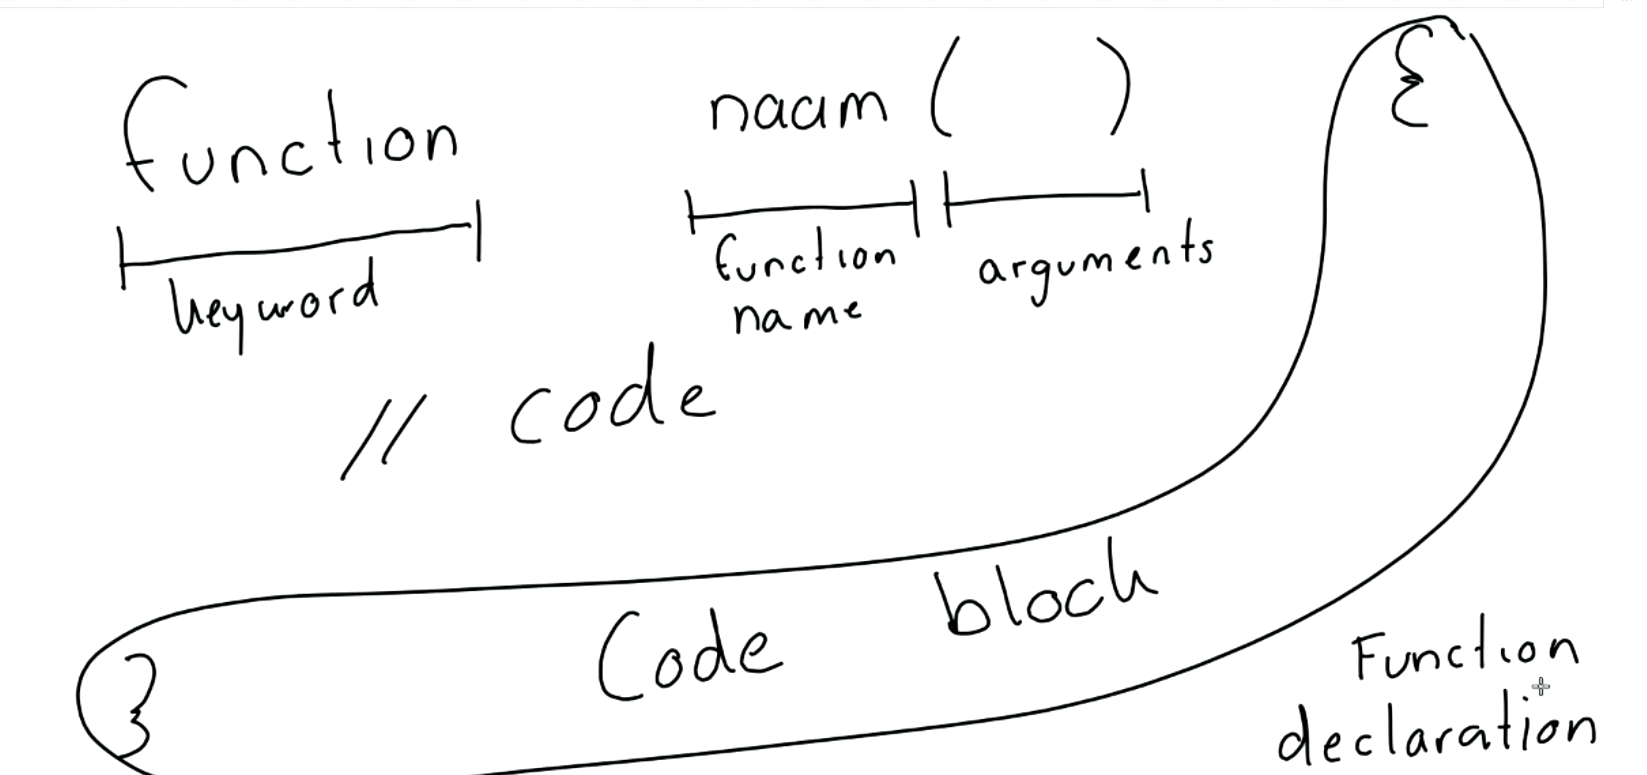 function naam ( ) {
keyword function arguments
name
// code
Code block
}
Function
declaration